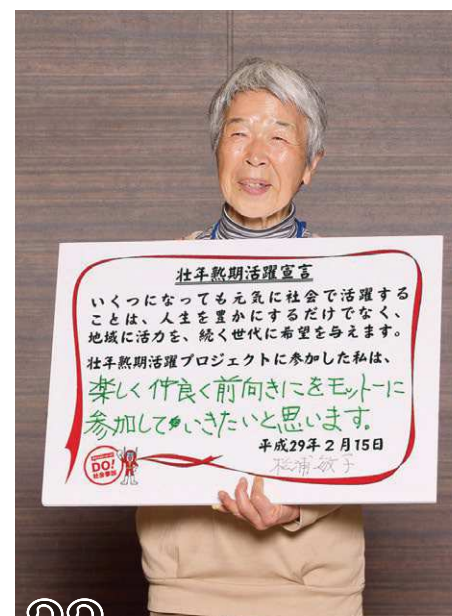 壮年熟期活躍宣言
いくつになっても元気に社会で活躍する
ことは、人生を豊かにするだけでなく、
地域に活力を、続く世代に希望を与えます。
壮年熟期活躍プロジェクトに参加した私は、
楽しく仲良く前向きにをモットーに
参加していきたいと思います。
平成29年2月15日
松浦敏子
DO!
社会参加